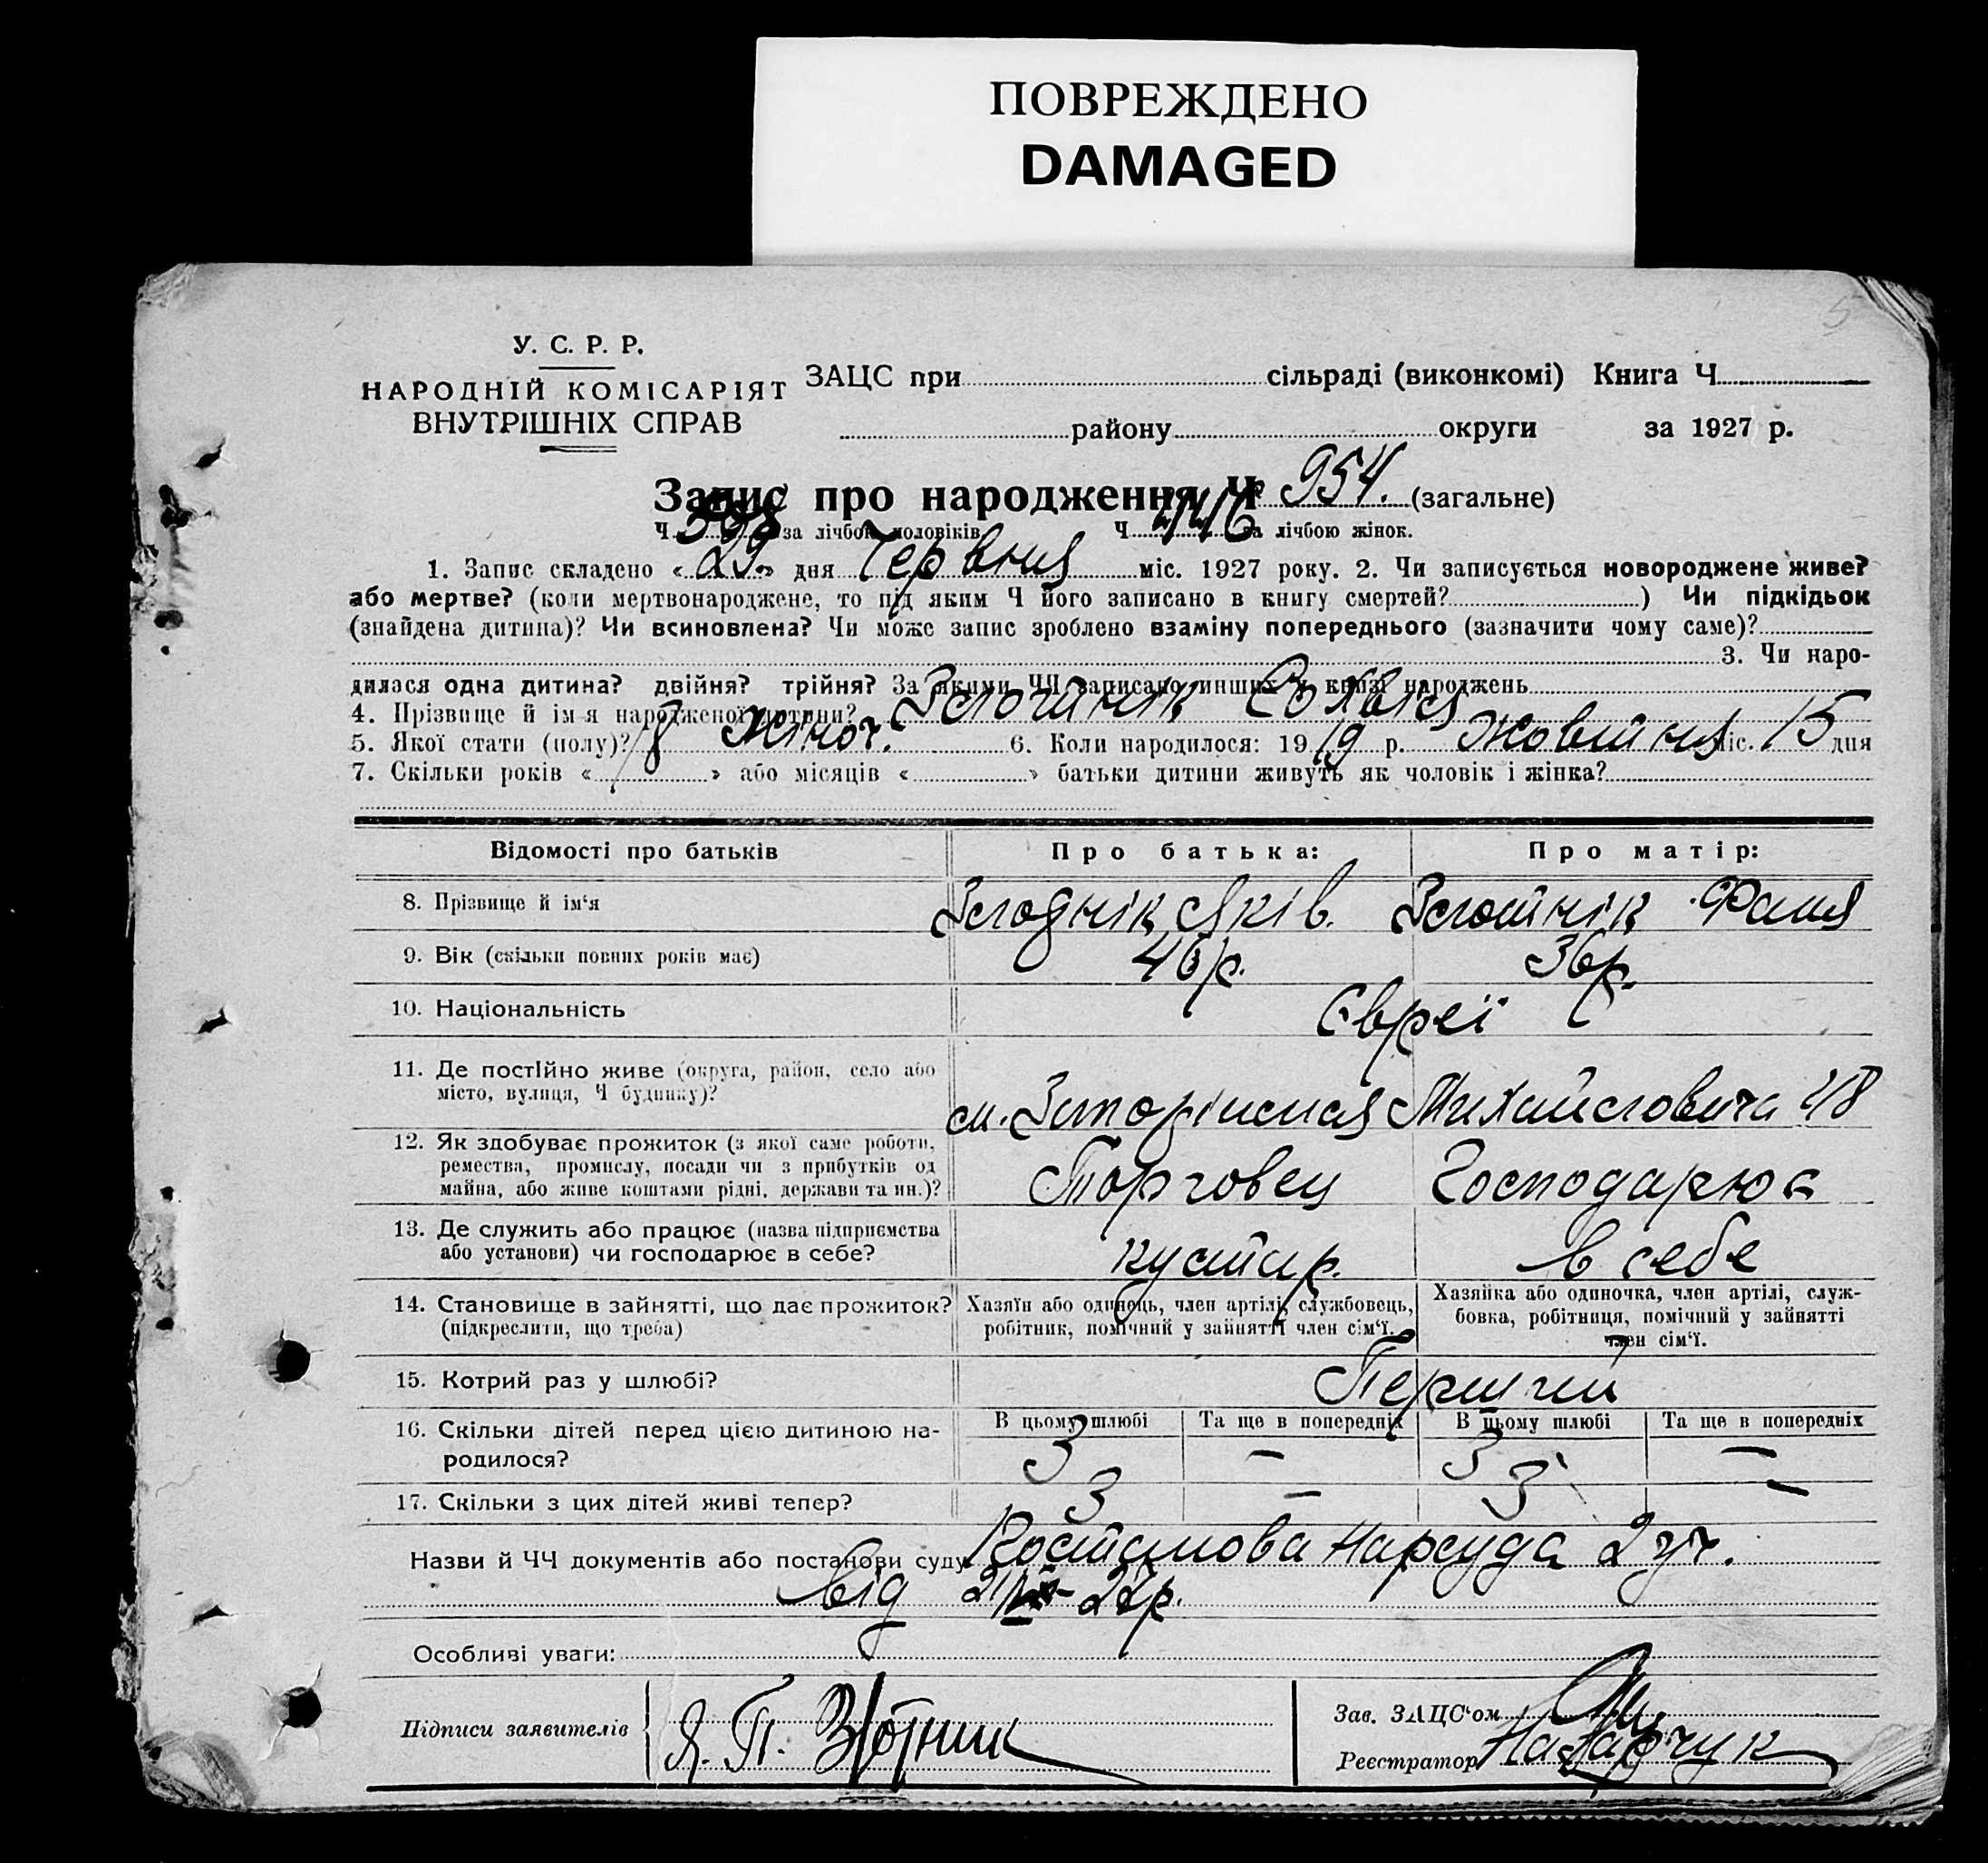 ПОВРЕЖДЕНО
DAMAGED
5
У. С. Р. Р.
НАРОДНІЙ КОМІСАРІЯТ
ВНУТРІШНІХ СПРАВ
ЗАЦС при сільраді (виконкомі) Книга Ч
району округи за 1927 р.
Запис про народження Ч 954. (загальне)
Ч за лічбою чоловіків Ч за лічбою жінок.
1. Запис складено « 29 » дня Червня міс. 1927 року. 2. Чи записується новороджене живе?
або мертве? (коли мертвонароджене, то під яким Ч його записано в книгу смертей? ) Чи підкідьок
(знайдена дитина)? Чи всиновлена? Чи може запис зроблено взаміну попереднього (зазначити чому саме)?
3. Чи наро-
дилася одна дитина? двійня? трійня? За якими ЧЧ записано инших у книзі народжень
4. Прізвище й ім'я народженої дитини? Злотнік
5. Якої стати (полу)? Жіноч. 6. Коли народилося: 19 19 р. Жовтня міс. 15 дня
7. Скільки років « 18 » або місяців « » батьки дитини живуть як чоловік і жінка?
Відомості про батьків Про батька: Про матір:
8. Прізвище й ім'я Злоднік Яків. Злотнік Фаня
9. Вік (скільки повних років має) 46 р. 36 р.
10. Національність Євреї
11. Де постійно живе (округа, район, село або
місто, вулиця, Ч будинку)? Михайловича 48
12. Як здобуває прожиток (з якої саме роботи,
ремества, промислу, посади чи з прибутків од
майна, або живе коштами рідні, держави та ин.)? Торговец Господарює
13. Де служить або працює (назва підприємства
або установи) чи господарює в себе? кустар. в себе
14. Становище в зайнятті, що дає прожиток?
(підкреслити, що треба)
Хазяїн або одинець, член артілі, службовець,
робітник, помічний у зайнятті член сім'ї.
Хазяйка або одиночка, член артілі, служ-
бовка, робітниця, помічний у зайнятті
член сім'ї.
15. Котрий раз у шлюбі? Перший
В цьому шлюбі Та ще в попередніх В цьому шлюбі Та ще в попередніх
16. Скільки дітей перед цією дитиною на-
родилося? 3 – 3 –
17. Скільки з цих дітей живі тепер? 3 – 3 –
Назви й ЧЧ документів або постанови суду Постанова Нарсуда 2 уч.
від 27р.
Особливі уваги:
Підписи заявителів Я. П. Злотник
Зав. ЗАЦС'ом
Реєстратор